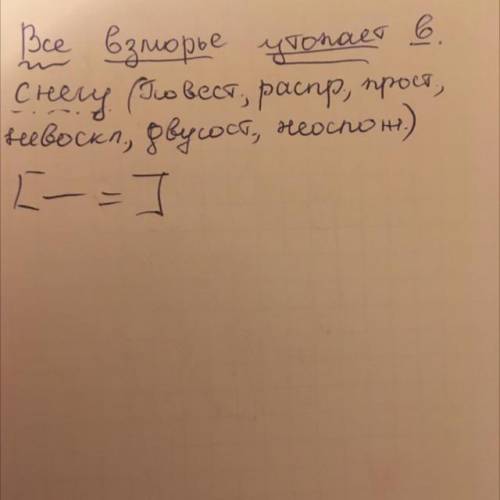 Все взморье утопает в
снегу (Повест., распр., прост.,
невоскл., двусост., неослож.)
[— =]